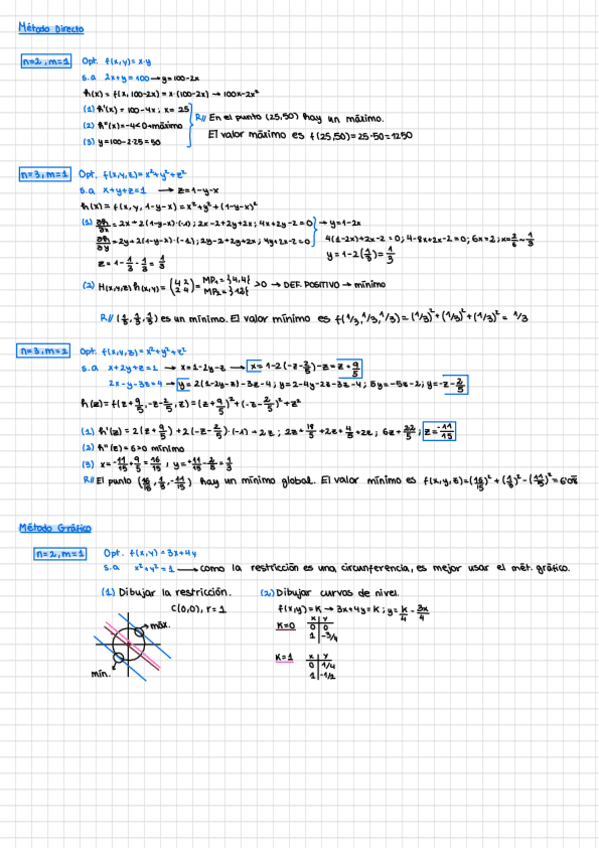 Método Directo
n=2, m=1 Opt. f(x,y)=x·y
s.a 2x+y=100 → y=100-2x
h(x) = f(x, 100-2x) = x·(100-2x) → 100x-2x²
(1) h'(x) = 100-4x ; x=25
(2) h''(x)=-4<0→máximo
(3) y=100-2·25=50
R// En el punto (25,50) hay un máximo.
El valor máximo es f(25,50)=25·50=1250
n=3, m=1 Opt. f(x,y,z)=x²+y²+z²
s.a x+y+z=1 → z=1-y-x
h(x) = f(x, y, 1-y-x) = x²+y²+(1-y-x)²
(1) ∂h/∂x = 2x+2(1-y-x)·(-1) ; 2x-2+2y+2x ; 4x+2y-2=0
∂h/∂y = 2y+2(1-y-x)·(-1) ; 2y-2+2y+2x ; 4y+2x-2=0
→ y=1-2x
4(1-2x)+2x-2=0 ; 4-8x+2x-2=0 ; 6x=2 ; x=2/6~1/3
y=1-2(1/3)=1/3
z=1-1/3-1/3=1/3
(2) H(x,y,z) h(x,y) = (4 2 2 4) = MP₁={4,4} MP₂={12} >0 → DEF. POSITIVO → mínimo
R// (1/3, 1/3, 1/3) es un mínimo. El valor mínimo es f(1/3,1/3,1/3)=(1/3)²+(1/3)²+(1/3)²=1/3
Opt. f(x,y,z)=x²+y²+z²
s.a x+2y+z=1 → x=1-2y-z → x=1-2(-z-2/5)-z=z+9/5
2x-y-3z=4 → y=2(1-2y-z)-3z-4 ; y=2-4y-2z-3z-4 ; 5y=-5z-2 ; y=-z-2/5
h(z)=f(z+9/5, -z-2/5, z)=(z+9/5)²+(-z-2/5)²+z²
(1) h'(z)=2(z+9/5)+2(-z-2/5)·(-1)+2z ; 2z+18/5+2z+4/5+2z ; 6z+22/5 ; z=-11/15
(2) h''(z)=6>0 mínimo
(3) x=-11/15+9/5=16/15 ; y=+11/15-2/5=1/3
R// El punto (16/15, 1/3, -11/15) hay un mínimo global. El valor mínimo es
Método Gráfico
n=2, m=1 Opt. f(x,y)=3x+4y
s.a x²+y²=1 → como la restricción es una circunferencia, es mejor usar el mét. gráfico.
(1) Dibujar la restricción.
C(0,0), r=1
máx.
mín.
(2) Dibujar curvas de nivel.
f(x,y)=K → 3x+4y=K ; y=K/4-3x/4
K=0
x y
0 0
1 -3/4
K=1
x y
0 1/4
1 -1/2